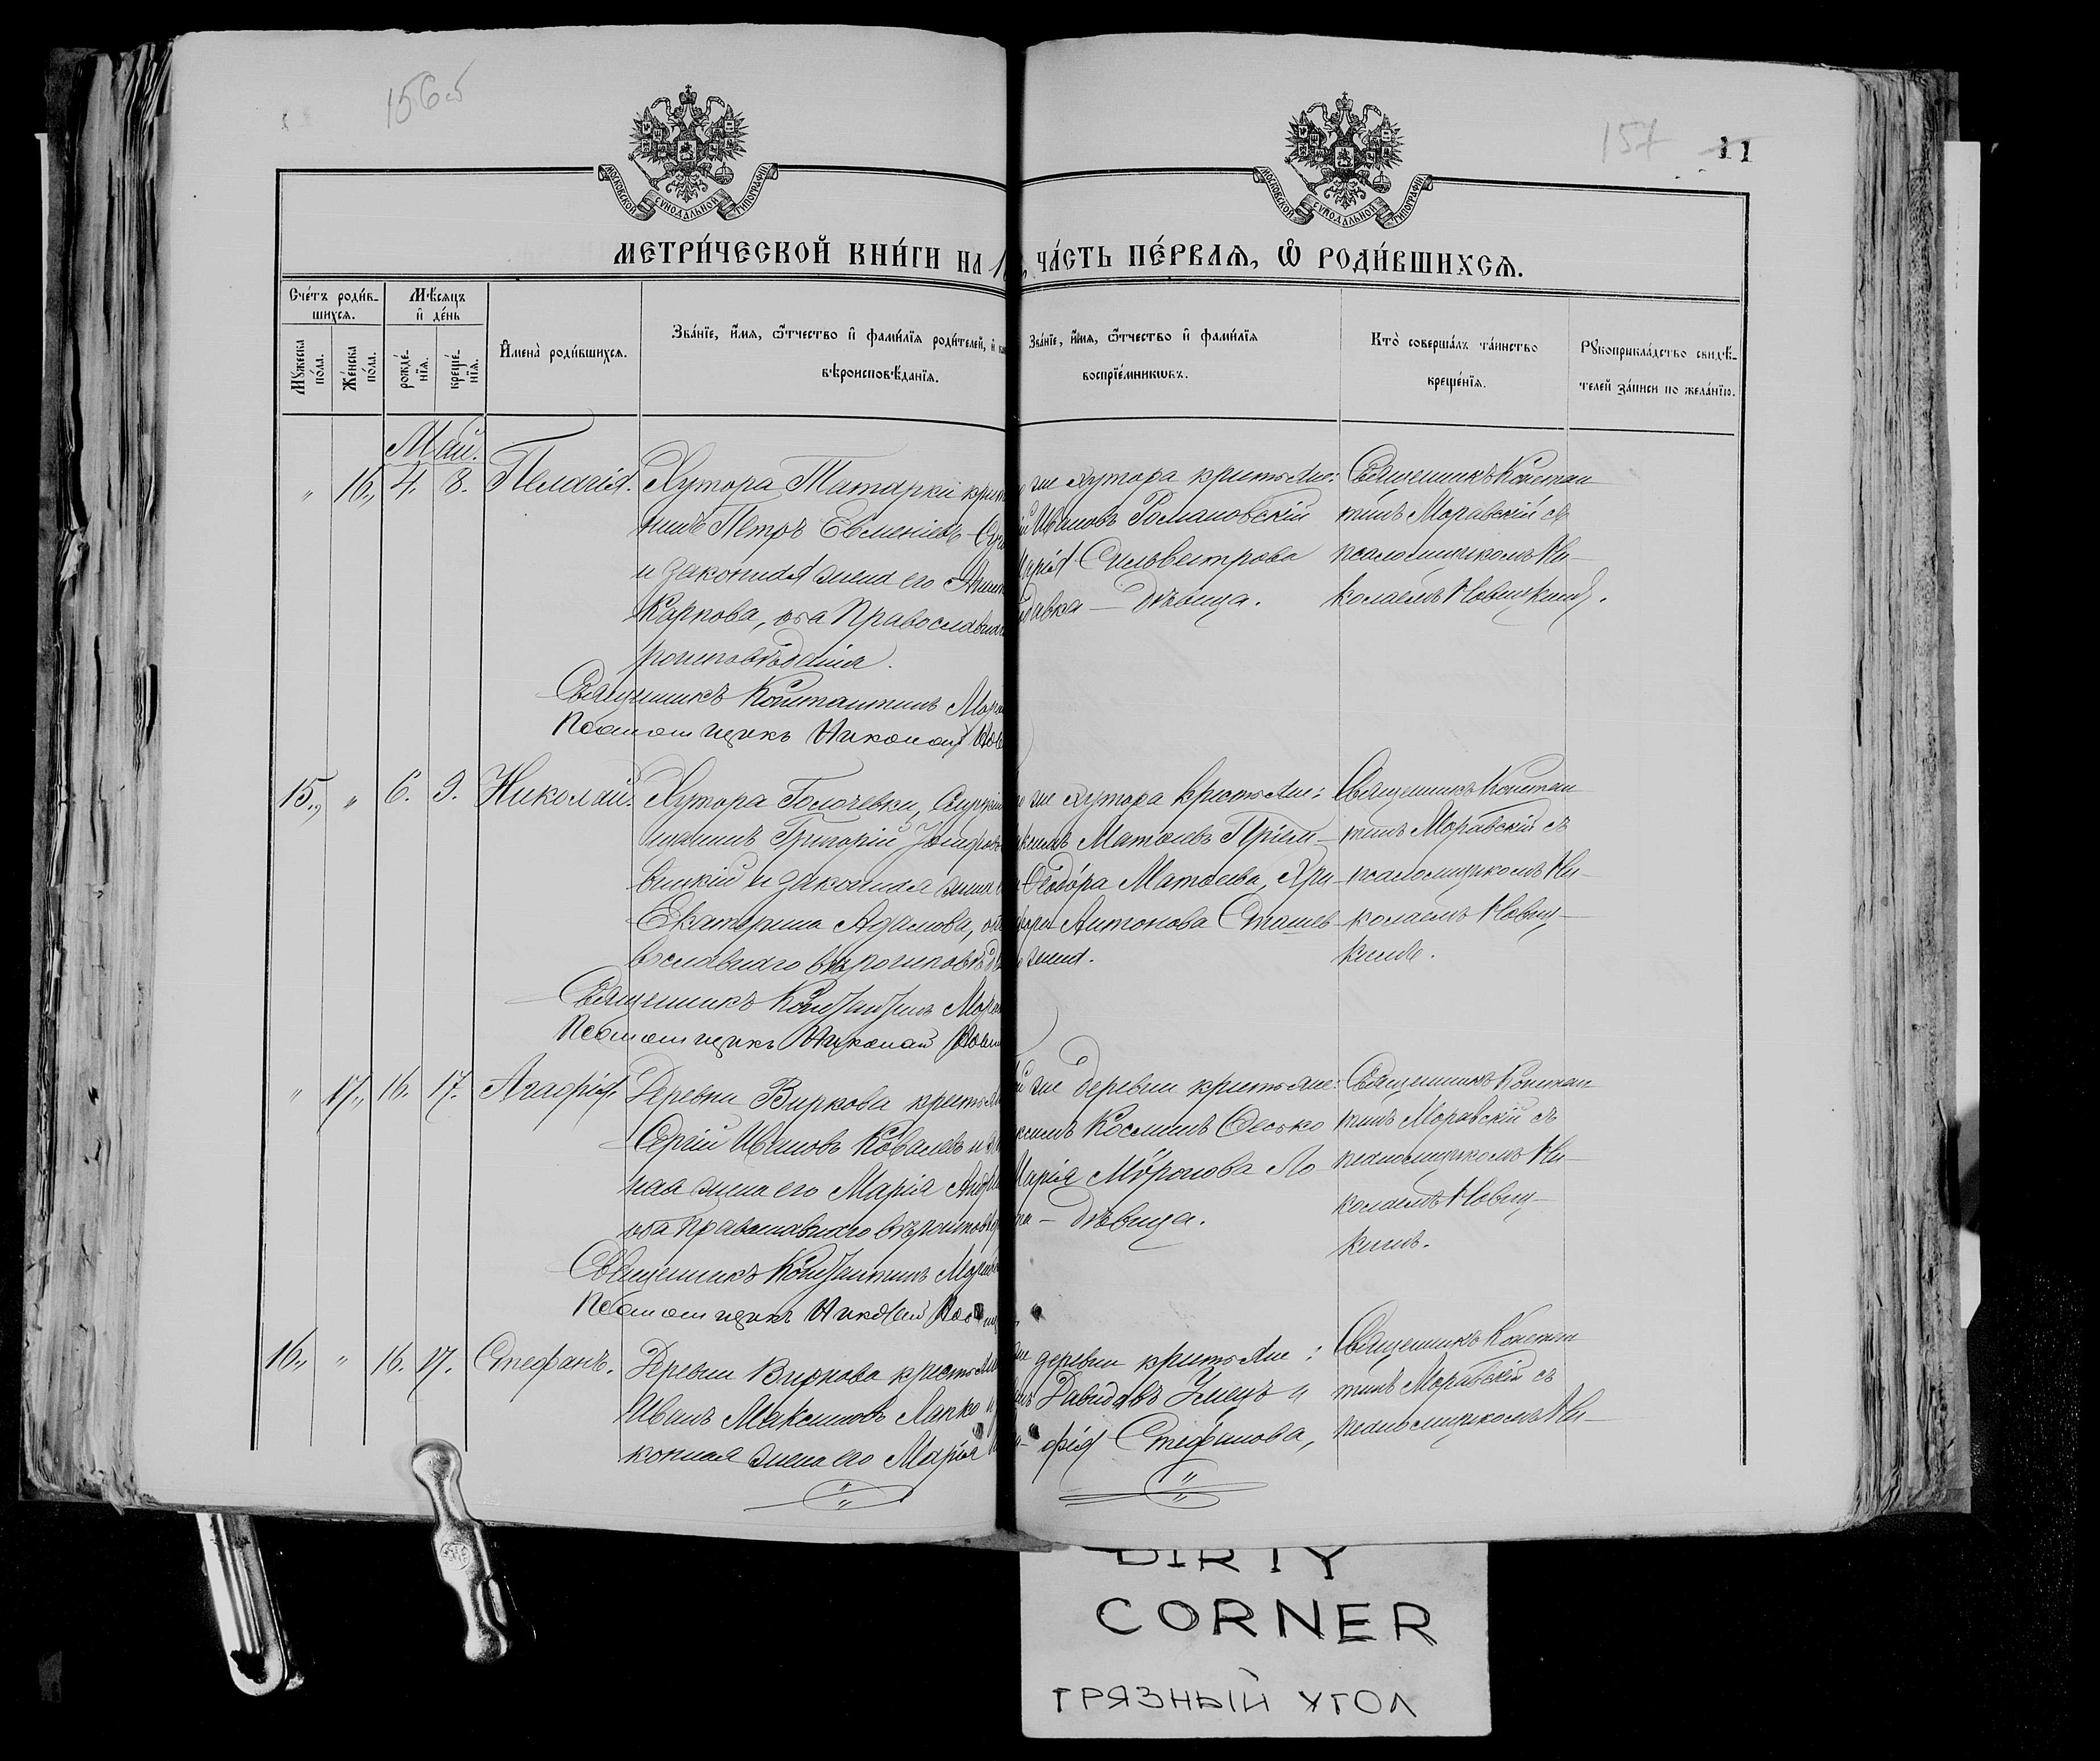 156об
157
11
МОСКОВСКОЙ СѴНОДАЛЬНОЙ ТИПОГРАФІИ
МОСКОВСКОЙ СѴНОДАЛЬНОЙ ТИПОГРАФІИ
МЕТРИ́ЧЕСКОЙ КНИ́ГИ НА 1
ЧА́СТЬ ПЕ́РВАѦ, Ѡ҆ РОДИ́ВШИХСѦ.
Сче́тъ роди́в-
шихсѧ.
Мѣ́сѧцъ
и҆ де́нь
Мꙋ́жеска
по́ла.
Же́нска
по́ла.
рожде́-
нїѧ.
креще́-
нїѧ.
И҆мена̀ роди́вшихсѧ.
Зва́нїе, и҆́мѧ, ѻ҆́тчество и҆ фами́лїѧ роди́телей, и҆
вѣроисповѣ́данїѧ.
Зва́нїе, и҆́мѧ, ѻ҆́тчество и҆ фами́лїѧ
воспрїе́мникѡвъ.
Кто̀ соверша́лъ та́инство
креще́нїѧ.
Рꙋкоприкла́дство свидѣ́-
телей за́писи по жела́нїю.
Май.
" 16., 4. 8. Пелагія. Хутора Татарки крест
нинъ Петръ Евменіевъ
и законная жена его
Карпова, оба Православна
роисповѣданія.
Священникъ Константинъ Мора
Псаломщикъ Николай Нов
же хутора крестьяне:
Ивановъ Романовскій
Марія Сильвестрова
дѣвица.
Священникъ Констан
тинъ Моравскій съ
псаломщикомъ Ни-
колаемъ Новицкимъ.
15., " 6. 9. Николай. Хутора Голочевки,
щанинъ Григорій Іосифовъ
вицкій и законная жена
Екатерина Адамова,
вославнаго вѣроисповѣд
Священникъ Константинъ Мора
Псаломщикъ Николай Нови
же хутора крестьяне:
Матѳіевъ
Ѳеодора Матѳіева,
Антонова
жена.
Священникъ Констан
тинъ Моравскій съ
псаломщикомъ Ни-
колаемъ Новиц-
кимъ.
" 17., 16. 17. Агафія. Деревни Виркова крестья
Сергій Ивановъ Ковалевъ и
ная жена его Марія Андре
оба православнаго вѣроисповѣд
Священникъ Константинъ Морав
Псаломщикъ Николай Новиц
же деревни крестьяне:
Косминъ Сесько
Марія Мѵронова Ло
дѣвица.
Священникъ Констан
тинъ Моравскій съ
псаломщикомъ Ни-
колаемъ Новиц-
кимъ.
16., " 16. 17. Стефанъ. Деревни Виркова крестьян
Иванъ Максимовъ Лапко и
конная жена его Марія
деревни крестьяне:
Давидовъ Улецъ и
фія Стефанова,
Священникъ Констан
тинъ Моравскій съ
псаломщикомъ Ни-
DIRTY
CORNER
ГРЯЗНЫЙ УГОЛ